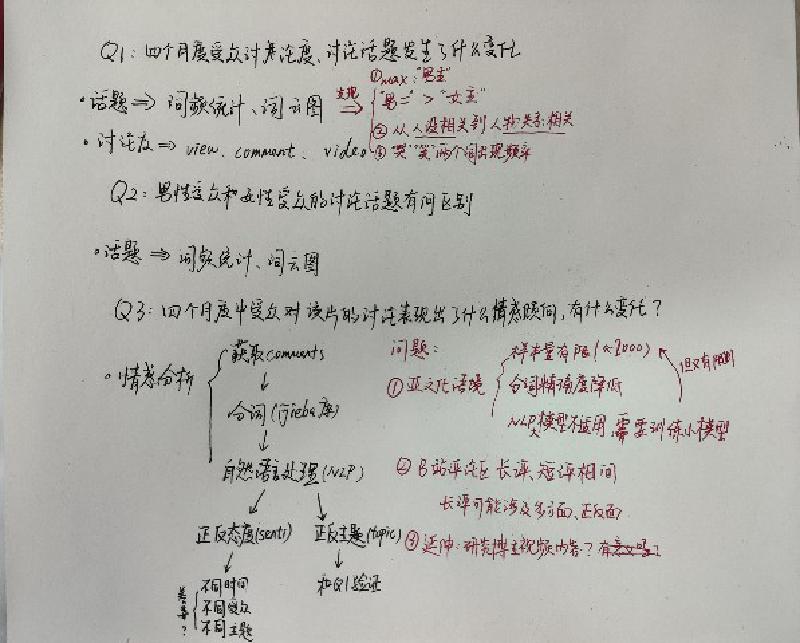 Q1: 四个月度受众讨论度、讨论话题发生了什么变化
·话题⇒ 词频统计、词云图 发现⇒
①max: "男主"
"男二" > "女主"
②从人设相关到人物关系相关
③"哭""笑"两个词出现频率
·讨论度⇒ view、comment、video
Q2: 男性受众和女性受众的讨论话题有何区别
·话题⇒ 词频统计、词云图
Q3: 四个月度中受众对该片的讨论表现出了什么情感倾向,有什么变化?
·情感分析
获取comments
↓
分词(jieba库)
↓
自然语言处理(NLP)
正反态度(senti) 正反主题(topic)
↓ ↓
差异?
不同时间
不同受众
不同主题
和Q1验证
问题:
①亚文化语境
样本量有限(≈7000)
分词精确度降低
NLP大模型不适用,需要训练小模型
但又有限制
②B站评论区长评、短评相间
长评可能涉及多方面、正反面.
③延伸:研究博主视频内容?有意义吗?